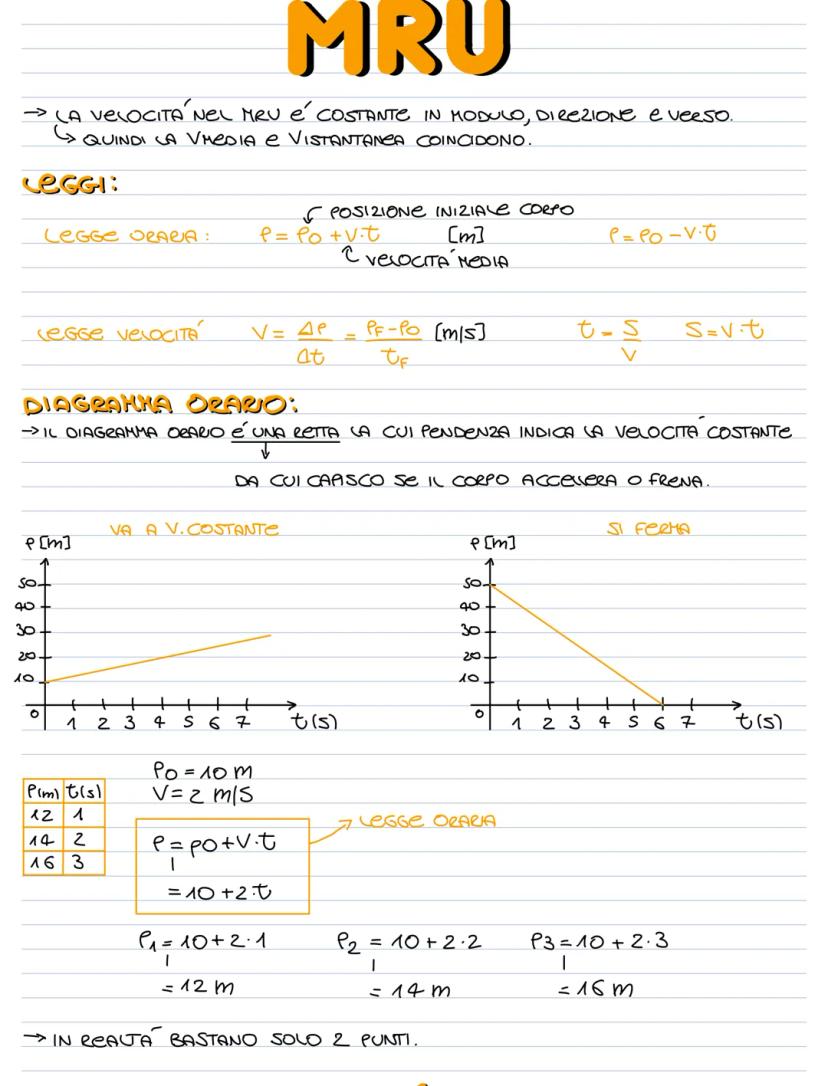 MRU
→ LA VELOCITÀ NEL MRU É COSTANTE IN MODULO, DIREZIONE E VERSO.
↳ QUINDI LA VMEDIA E VISTANTANEA COINCIDONO.
LEGGI:
POSIZIONE INIZIALE CORPO
LEGGE ORARIA: P = P0 + V·t [m] P = P0 - V·t
VELOCITÀ MEDIA
LEGGE VELOCITÀ V = ΔP/Δt = PF-P0/tF [m/s] t = S/V S = V·t
DIAGRAMMA ORARIO:
→ IL DIAGRAMMA ORARIO É UNA RETTA LA CUI PENDENZA INDICA LA VELOCITÀ COSTANTE
DA CUI CAPISCO SE IL CORPO ACCELERA O FRENA.
VA A V. COSTANTE SI FERMA
P [m] P [m]
50 50
40 40
30 30
20 20
10 10
0 1 2 3 4 5 6 7 t(s) 0 1 2 3 4 5 6 7 t(s)
P0 = 10 m
P(m) t(s) V = 2 m/s
12 1
14 2
16 3
LEGGE ORARIA
P = P0 + V·t
= 10 + 2·t
P1 = 10 + 2·1 P2 = 10 + 2·2 P3 = 10 + 2·3
= 12 m = 14 m = 16 m
→ IN REALTÀ BASTANO SOLO 2 PUNTI.